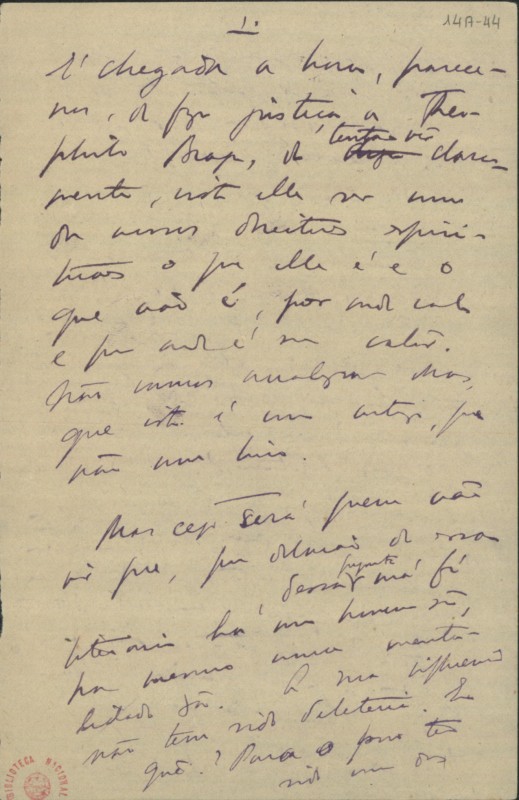 1.
14A-44
É chegada a hora, parece-
nos, de fazer justiça a Theo-
philo Braga, de tentar ver clara-
mente, visto elle ser um
dos nossos directores espiri-
tuaes o que elle é e o
que não é, por onde vale
e por onde é sem valor.
Não vamos analysar
que isto é um artigo, que
não um livro.
Mas cego será quem não
vir que, por de essa
dessa má fé
litteraria ha um homem são,
por mesmo uma menta-
lidade sã. A sua influencia
não tem sido deleteria. Em
quê? Para o povo tem
sido um dos
BIBLIOTECA NACIONAL